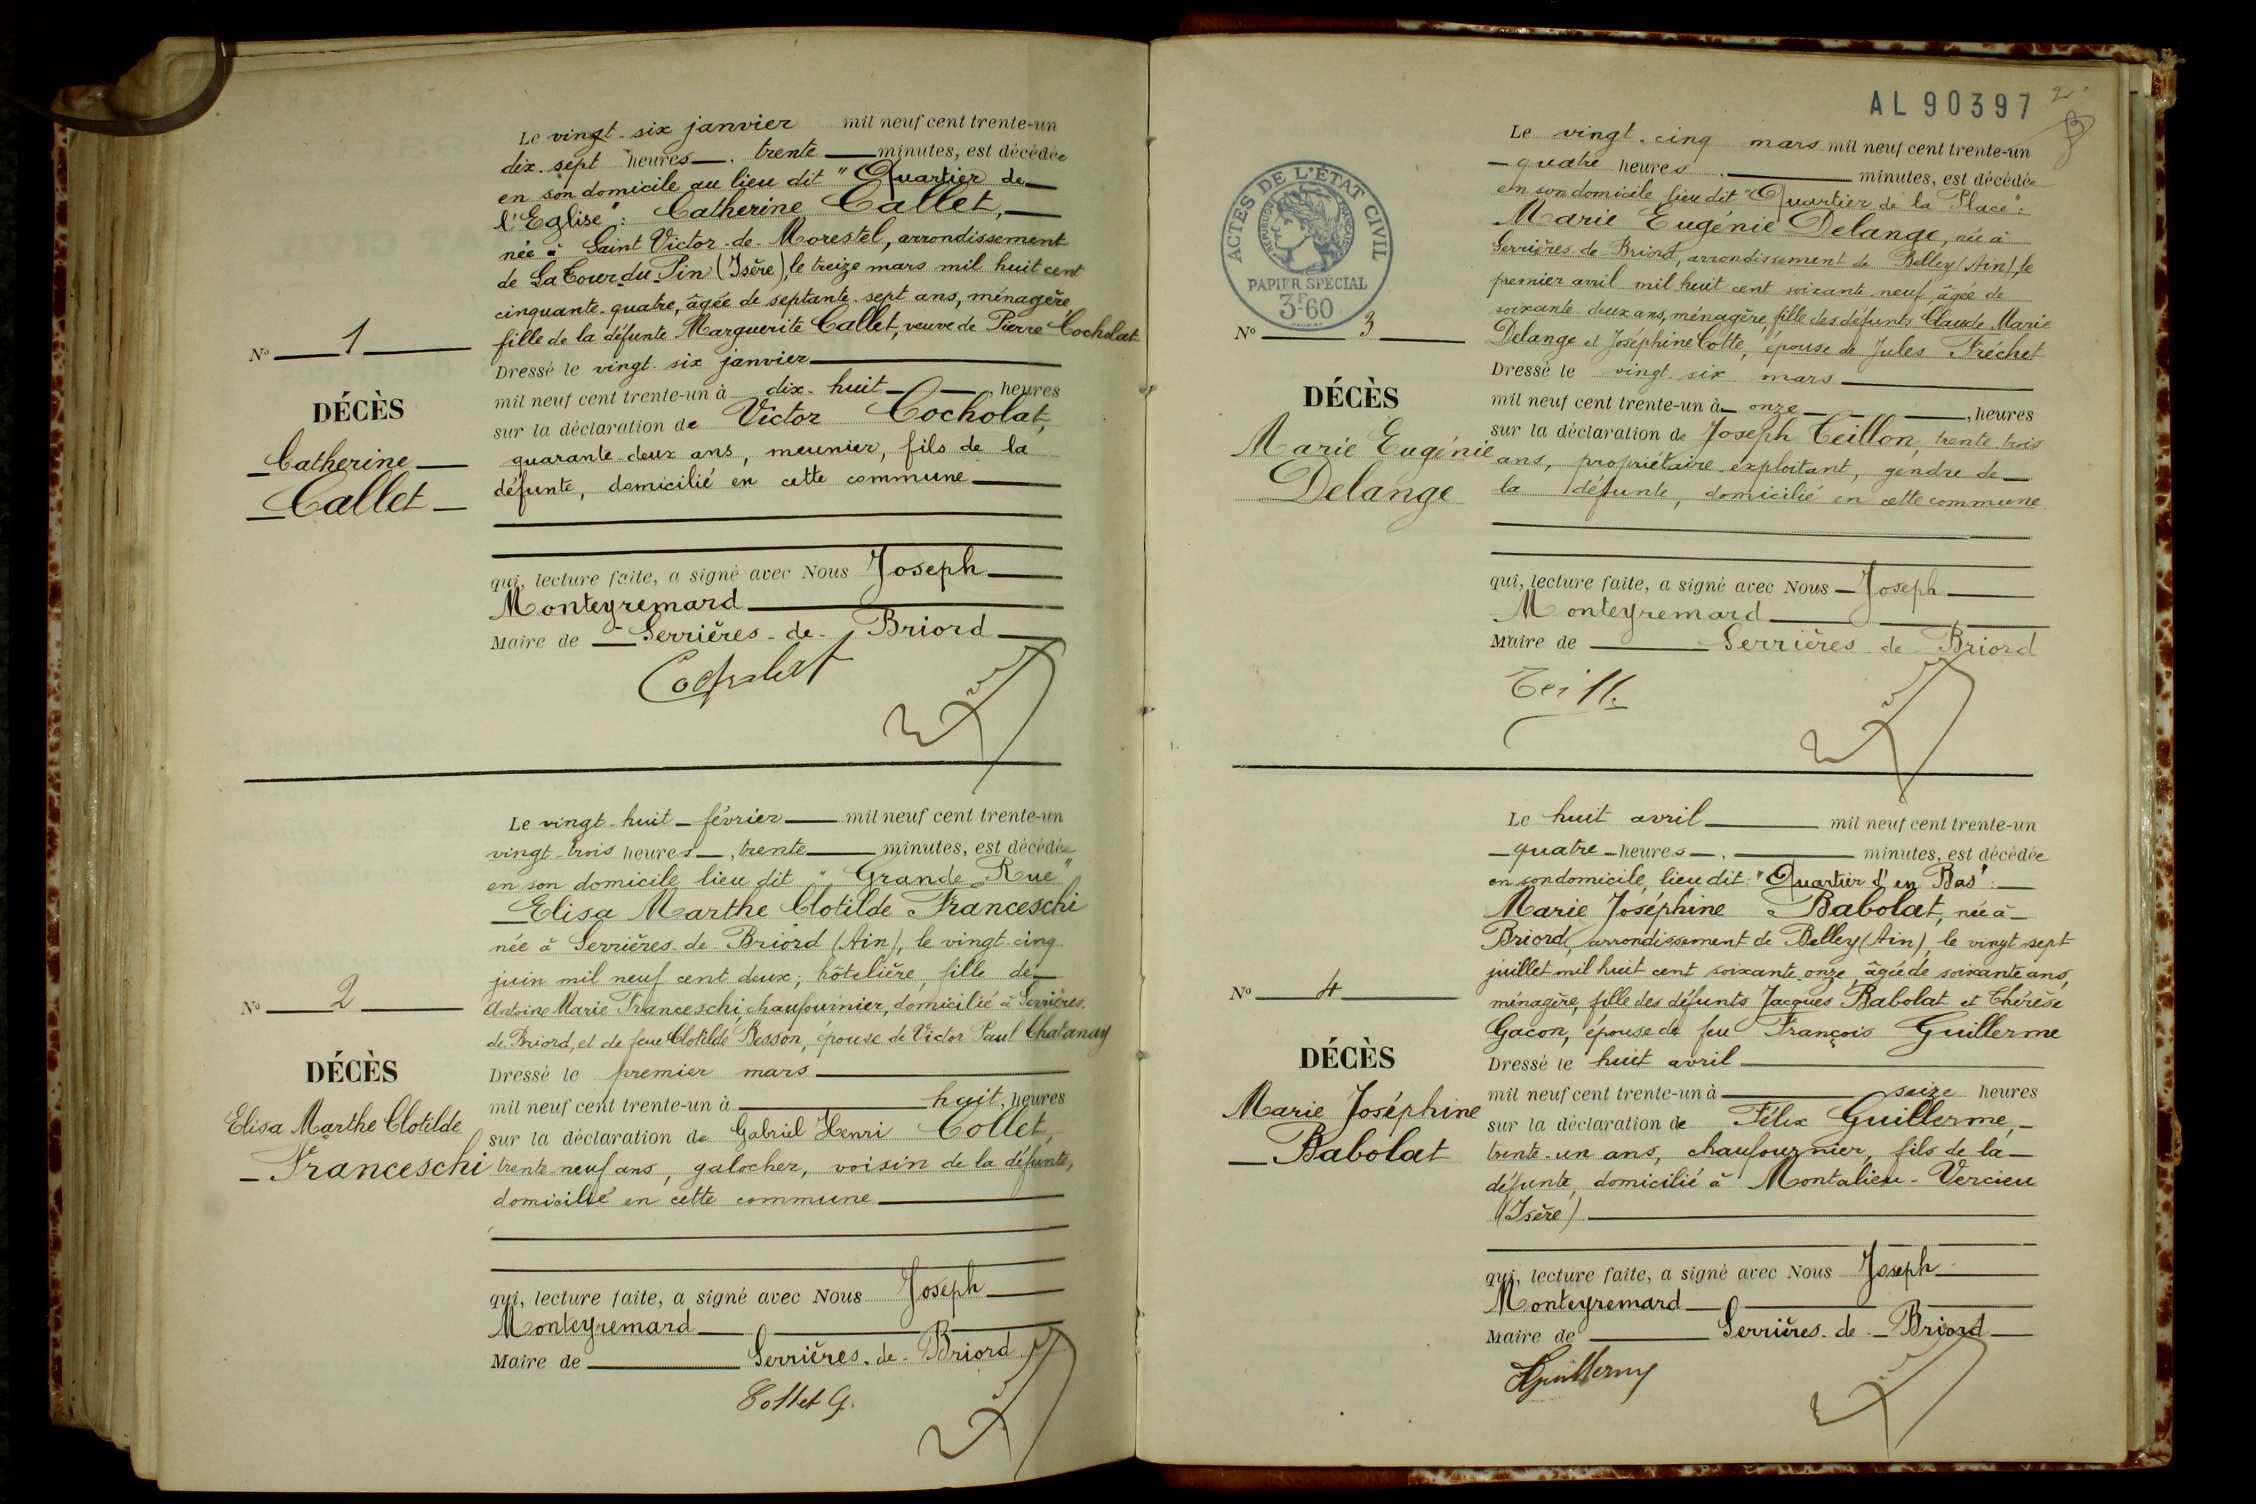 Le vingt-six janvier mil neuf cent trente-un
dix-sept heures, trente minutes, est décédée
en son domicile au lieu dit "Quartier de
l'Eglise": Catherine Callet,
née à Saint Victor-de-Morestel, arrondissement
de La Tour du Pin (Isère), le treize mars mil huit cent
cinquante-quatre, âgée de septante-sept ans, ménagère,
fille de la défunte Marguerite Callet, veuve de Pierre Cocholat
Dressé le vingt-six janvier
mil neuf cent trente-un à dix-huit heures
sur la déclaration de Victor Cocholat,
quarante-deux ans, meunier, fils de la
défunte, domicilié en cette commune
qui, lecture faite, a signé avec Nous Joseph
Monteyremard
Maire de Serrières-de-Briord
Cocholat
N° 1
DÉCÈS
Catherine
Callet
Le vingt-huit février mil neuf cent trente-un
vingt-trois heures, trente minutes, est décédée
en son domicile lieu dit "Grande Rue"
Elisa Marthe Clotilde Franceschi
née à Serrières-de-Briord (Ain), le vingt-cinq
juin mil neuf cent deux, hôtelière, fille de
Antoine Marie Franceschi, chaufournier, domicilié à Serrières-
de-Briord, et de feue Clotilde Besson, épouse de Victor Paul Chatanay
Dressé le premier mars
mil neuf cent trente-un à huit heures
sur la déclaration de Gabriel Henri Collet,
trente-neuf ans, galocher, voisin de la défunte,
domicilié en cette commune
qui, lecture faite, a signé avec Nous Joseph
Monteyremard
Maire de Serrières-de-Briord
Collet G.
N° 2
DÉCÈS
Elisa Marthe Clotilde
Franceschi
AL 90397
2
ACTES DE L'ÉTAT CIVIL
RÉPUBLIQUE FRANÇAISE
PAPIER SPÉCIAL
3F60
Le vingt-cinq mars mil neuf cent trente-un
quatre heures, minutes, est décédée
en son domicile lieu dit "Quartier de la Place":
Marie Eugénie Delange, née à
Serrières-de-Briord, arrondissement de Belley (Ain), le
premier avril mil huit cent soixante-neuf, âgée de
soixante-deux ans, ménagère, fille des défunts Claude Marie
Delange et Joséphine Cotte, épouse de Jules Fréchet
Dressé le vingt-six mars
mil neuf cent trente-un à onze heures
sur la déclaration de Joseph Teillon, trente-trois
ans, propriétaire-exploitant, gendre de
la défunte, domicilié en cette commune
qui, lecture faite, a signé avec Nous Joseph
Monteyremard
Maire de Serrières de Briord
N° 3
DÉCÈS
Marie Eugénie
Delange
Le huit avril mil neuf cent trente-un
quatre heures, minutes, est décédée
en son domicile, lieu dit: "Quartier d'en Bas":
Marie Joséphine Babolat, née à
Briord, arrondissement de Belley (Ain), le vingt-sept
juillet mil huit cent soixante-onze, âgée de soixante ans,
ménagère, fille des défunts Jacques Babolat et Thérèse
Gacon, épouse de feu François Guillerme
Dressé le huit avril
mil neuf cent trente-un à seize heures
sur la déclaration de Félix Guillerme,
trente-un ans, chaufournier, fils de la
défunte, domicilié à Montalieu-Vercieu
(Isère)
qui, lecture faite, a signé avec Nous Joseph
Monteyremard
Maire de Serrières-de-Briord
N° 4
DÉCÈS
Marie Joséphine
Babolat